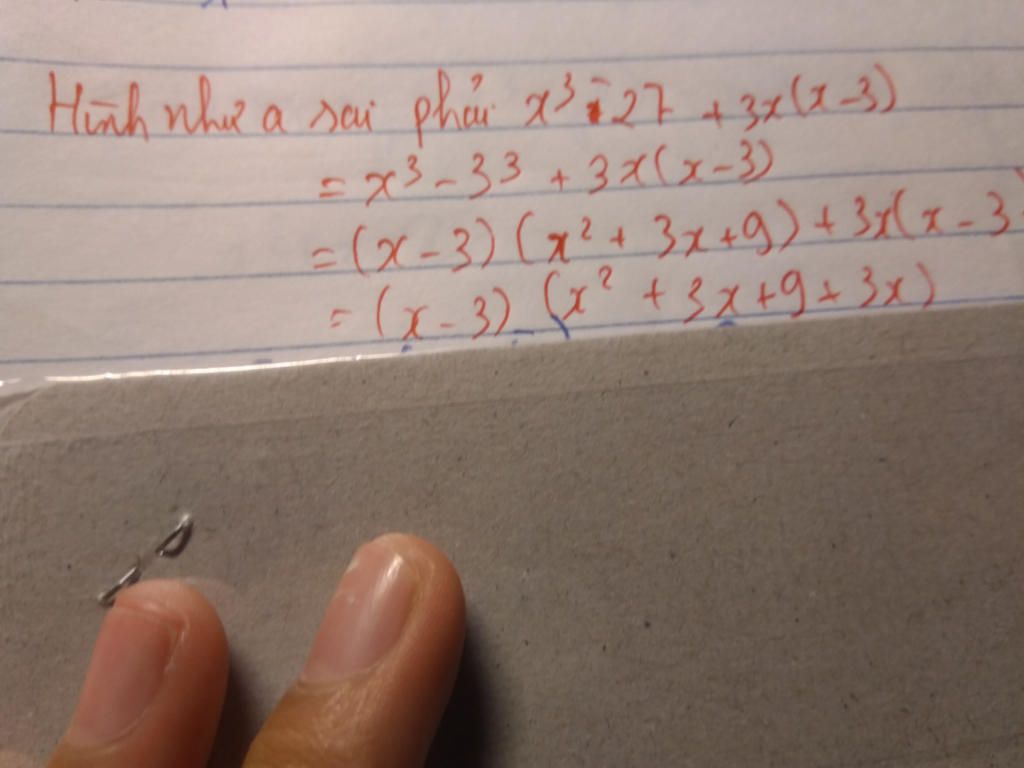 Hình như a sai phải x³ - 27 + 3x(x-3)
= x³ - 3³ + 3x(x-3)
= (x-3) (x² + 3x+9) + 3x(x-3)
= (x-3) (x² + 3x+9+3x)